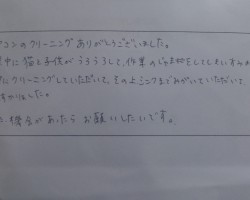 コンのクリーニングありがとうございました。
中に猫と子供がうろうろして、作業のじゃまをしてしまいすみま
にクリーニングしていただいて、その上シンクまでみがいていただいて、
すかりました。
機会があったら お願いしたいです。